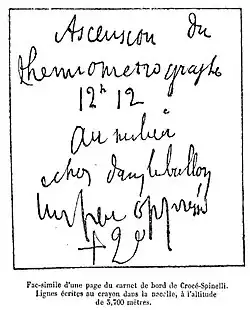 Ascension du
thermometrographe
12h 12
au milieu
echos dans le ballon
Un peu oppressé
+ 2°
Fac-simile d'une page du carnet de bord de Crocé-Spinelli.
Lignes écrites au crayon dans la nacelle, à l'altitude
de 3,700 mètres.